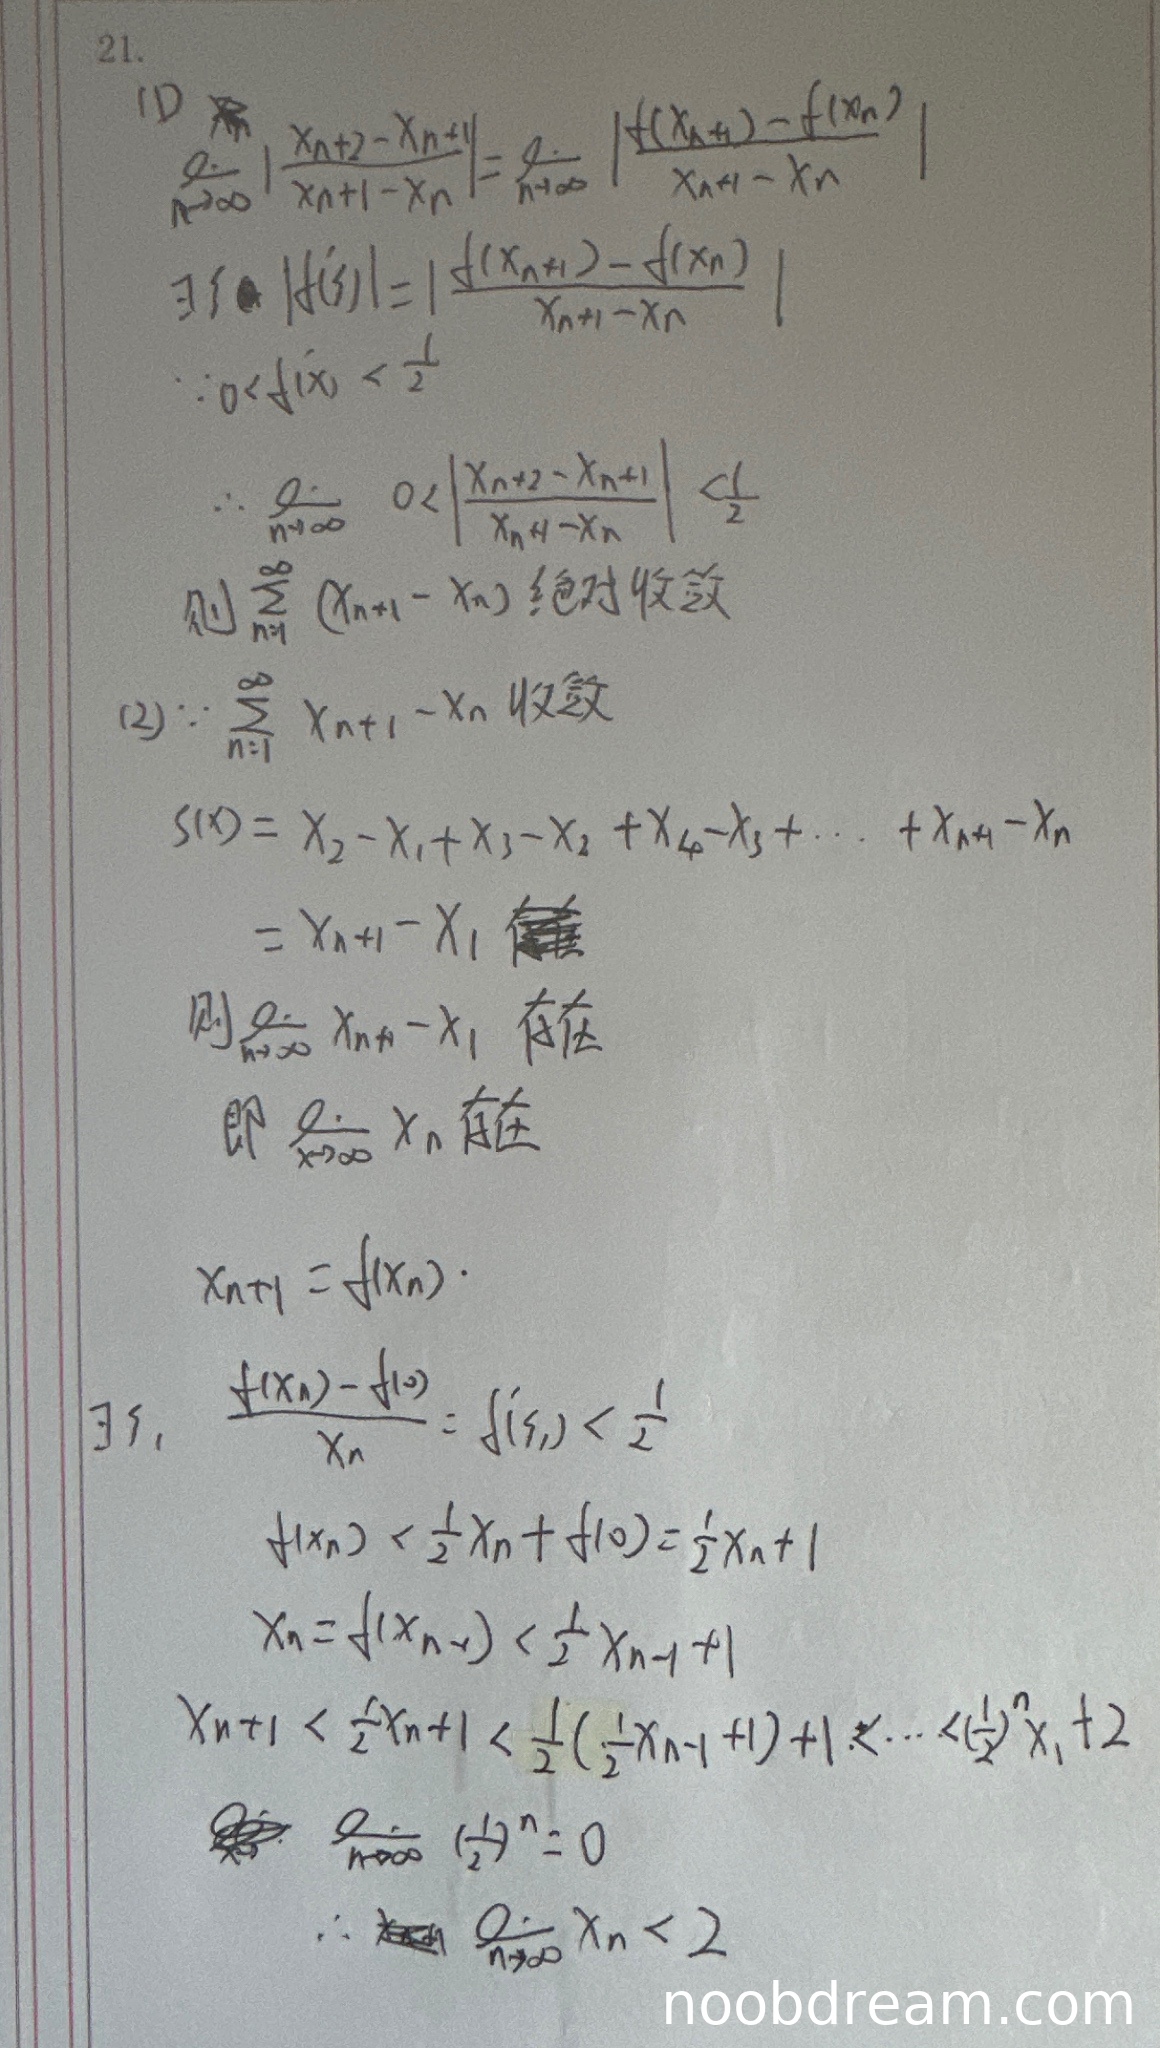 21.
(1) lim n→∞ |(xn+2 - xn+1)/(xn+1 - xn)| = lim n→∞ |(f(xn+1) - f(xn))/(xn+1 - xn)|
∃ξ |f'(ξ)| = |(f(xn+1) - f(xn))/(xn+1 - xn)|
∵ 0 < f'(x) < 1/2
∴ lim n→∞ 0 < |(xn+2 - xn+1)/(xn+1 - xn)| < 1/2
则 ∑ n=1 ∞ (xn+1 - xn) 绝对收敛
(2) ∵ ∑ n=1 ∞ xn+1 - xn 收敛
S(x) = x2 - x1 + x3 - x2 + x4 - x3 + ... + xn+1 - xn
= xn+1 - x1
则 lim n→∞ xn+1 - x1 存在
即 lim x→∞ xn 存在
xn+1 = f(xn).
∃ξ1 (f(xn) - f(0))/xn = f'(ξ1) < 1/2
f(xn) < 1/2 xn + f(0) = 1/2 xn + 1
xn = f(xn-1) < 1/2 xn-1 + 1
xn+1 < 1/2 xn + 1 < 1/2 (1/2 xn-1 + 1) + 1 < ... < (1/2)^n x1 + 2
lim n→∞ (1/2)^n = 0
∴ lim n→∞ xn < 2
noobdream.com